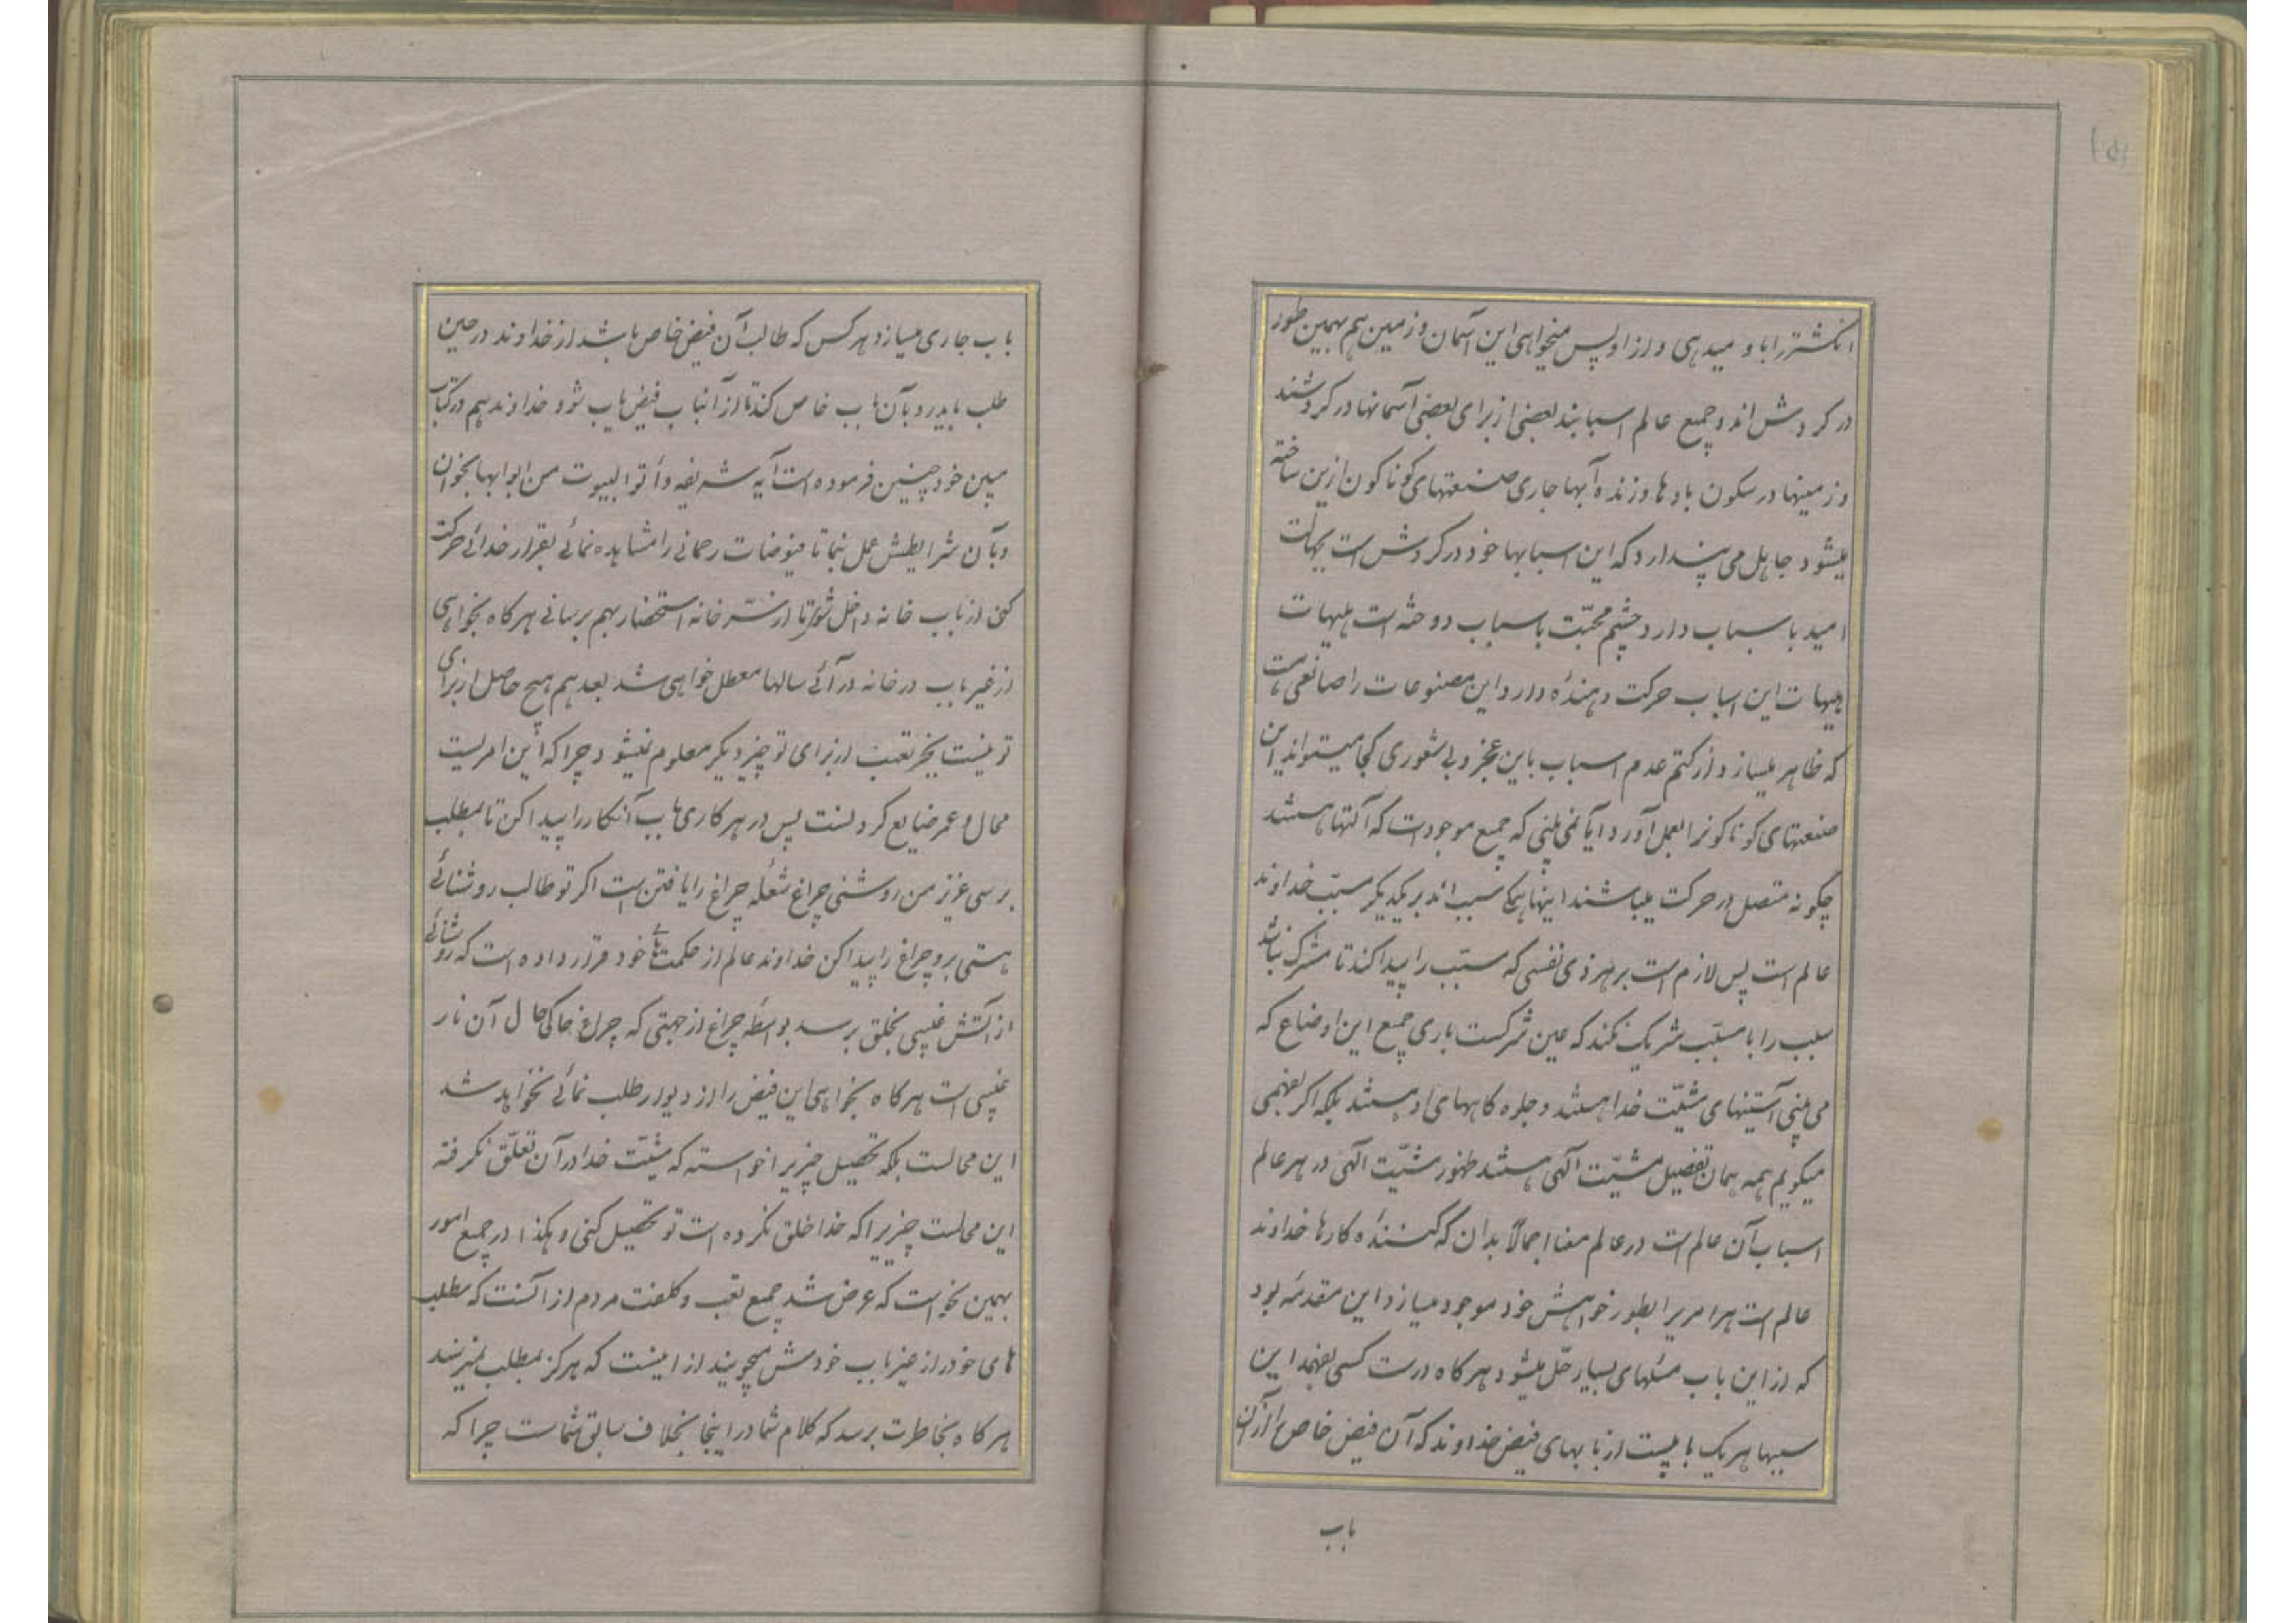 انکشتر را باو میدهی و از او پس میخواهی این آسمان و زمین هم بهمین طور
در کردش اند و جمیع عالم اسبابند بعضی از برای بعضی آسمانها در کردشند
و زمینها در سکون بادها وزنده آبها جاری صنعتهای کوناکون ازین ساخته
میشود جاهل می پندارد که این اسبابها خود در کردش است بجهالت
امید باسباب دارد چشم محبّت باسباب دوخته است هیهات
هیهات این اسباب حرکت دهندۀ دارد این مصنوعات را صانعی هست
که ظاهر میسازد از کتم عدم اسباب باین عجز و بی شعوری کجا میتواند این
صنعتهای کوناکونرا بعمل آورد آیا نمی بینی که جمیع موجودات که آلتها هستند
چکونه متصل در حرکت میباشند اینها همکی سبب اند بر یکدیکر مسبّب خداوند
عالم است پس لازم است بر هر ذی نفسی که مسبّب را پیدا کند تا مشرک نباشد
سبب را با مسبّب شریک نکند که عین شرکست باری جمیع این اوضاع که
می بینی آستینهای مشیّت خدا هستند و جلوه کاههای او هستند بلکه اکر بفهمی
میکویم همه همان تفصیل مشیّت آلهی هستند ظهور مشیّت آلهی در هر عالم
اسباب آن عالم است در عالم معنا اجمالاً بدان که کنندۀ کارها خداوند
عالم است هر امریرا بطور خواهش خود موجود میسازد این مقدمه بود
که از این باب مسٔلهای بسیار حلّ میشود هرکاه درست کسی بفهمد این
سببها هر یک بابیست از بابهای فیض خداوند که آن فیض خاص را از آن
باب
باب جاری میسازد هر کس که طالب آن فیض خاص باشد از خداوند در حین
طلب باید رو بآن باب خاص کند تا از آنباب فیض یاب شود خداوند هم در کتاب
مبین خود چنین فرموده است آیه شریفه وأتوا البیوت من ابوابها بخوان
و بآن شرایطش عمل نما تا فیوضات رحمانی را مشاهده نمائی بقرار خدائی حرکت
کن از باب خانه داخل شو تا از سرّ خانه استحضار بهم برسانی هرکاه بخواهی
از غیر باب در خانه در آئی سالها معطل خواهی شد بعد هم هیچ حاصل از برای
تو نیست بجز تعب از برای تو چیز دیکر معلوم نمیشود چرا که این امریست
محال و عمر ضایع کردنست پس در هر کاری باب آنکار را پیدا کن تا بمطلب
برسی عزیز من روشنی چراغ شعلۀ چراغ را یافتن است اکر تو طالب روشنائی
هستی برو چراغ را پیدا کن خداوند عالم از حکمتهای خود قرار داده است که روشنائی
از آتش غیبی بخلق برسد بواسطه چراغ از جهتی که چراغ حاکی حال آن نار
غیبی است هرکاه بخواهی این فیض را از دیوار طلب نمائی نخواهد شد
این محالست بلکه تحصیل چیزیرا خواسته که مشیّت خدا در آن تعلّق نکرفته
این محالست چیزیرا که خدا خلق نکرده است تو تحصیل کنی و هکذا در جمیع امور
بهمین نحو است که عرض شد جمیع تعب و کلفت مردم از آنست که مطلب
های خود را از غیر باب خودش میجویند از اینست که هرکز بمطلب نمیرسند
هرکاه بخاطرت برسد که کلام شما در اینجا بخلاف سابق شماست چرا که